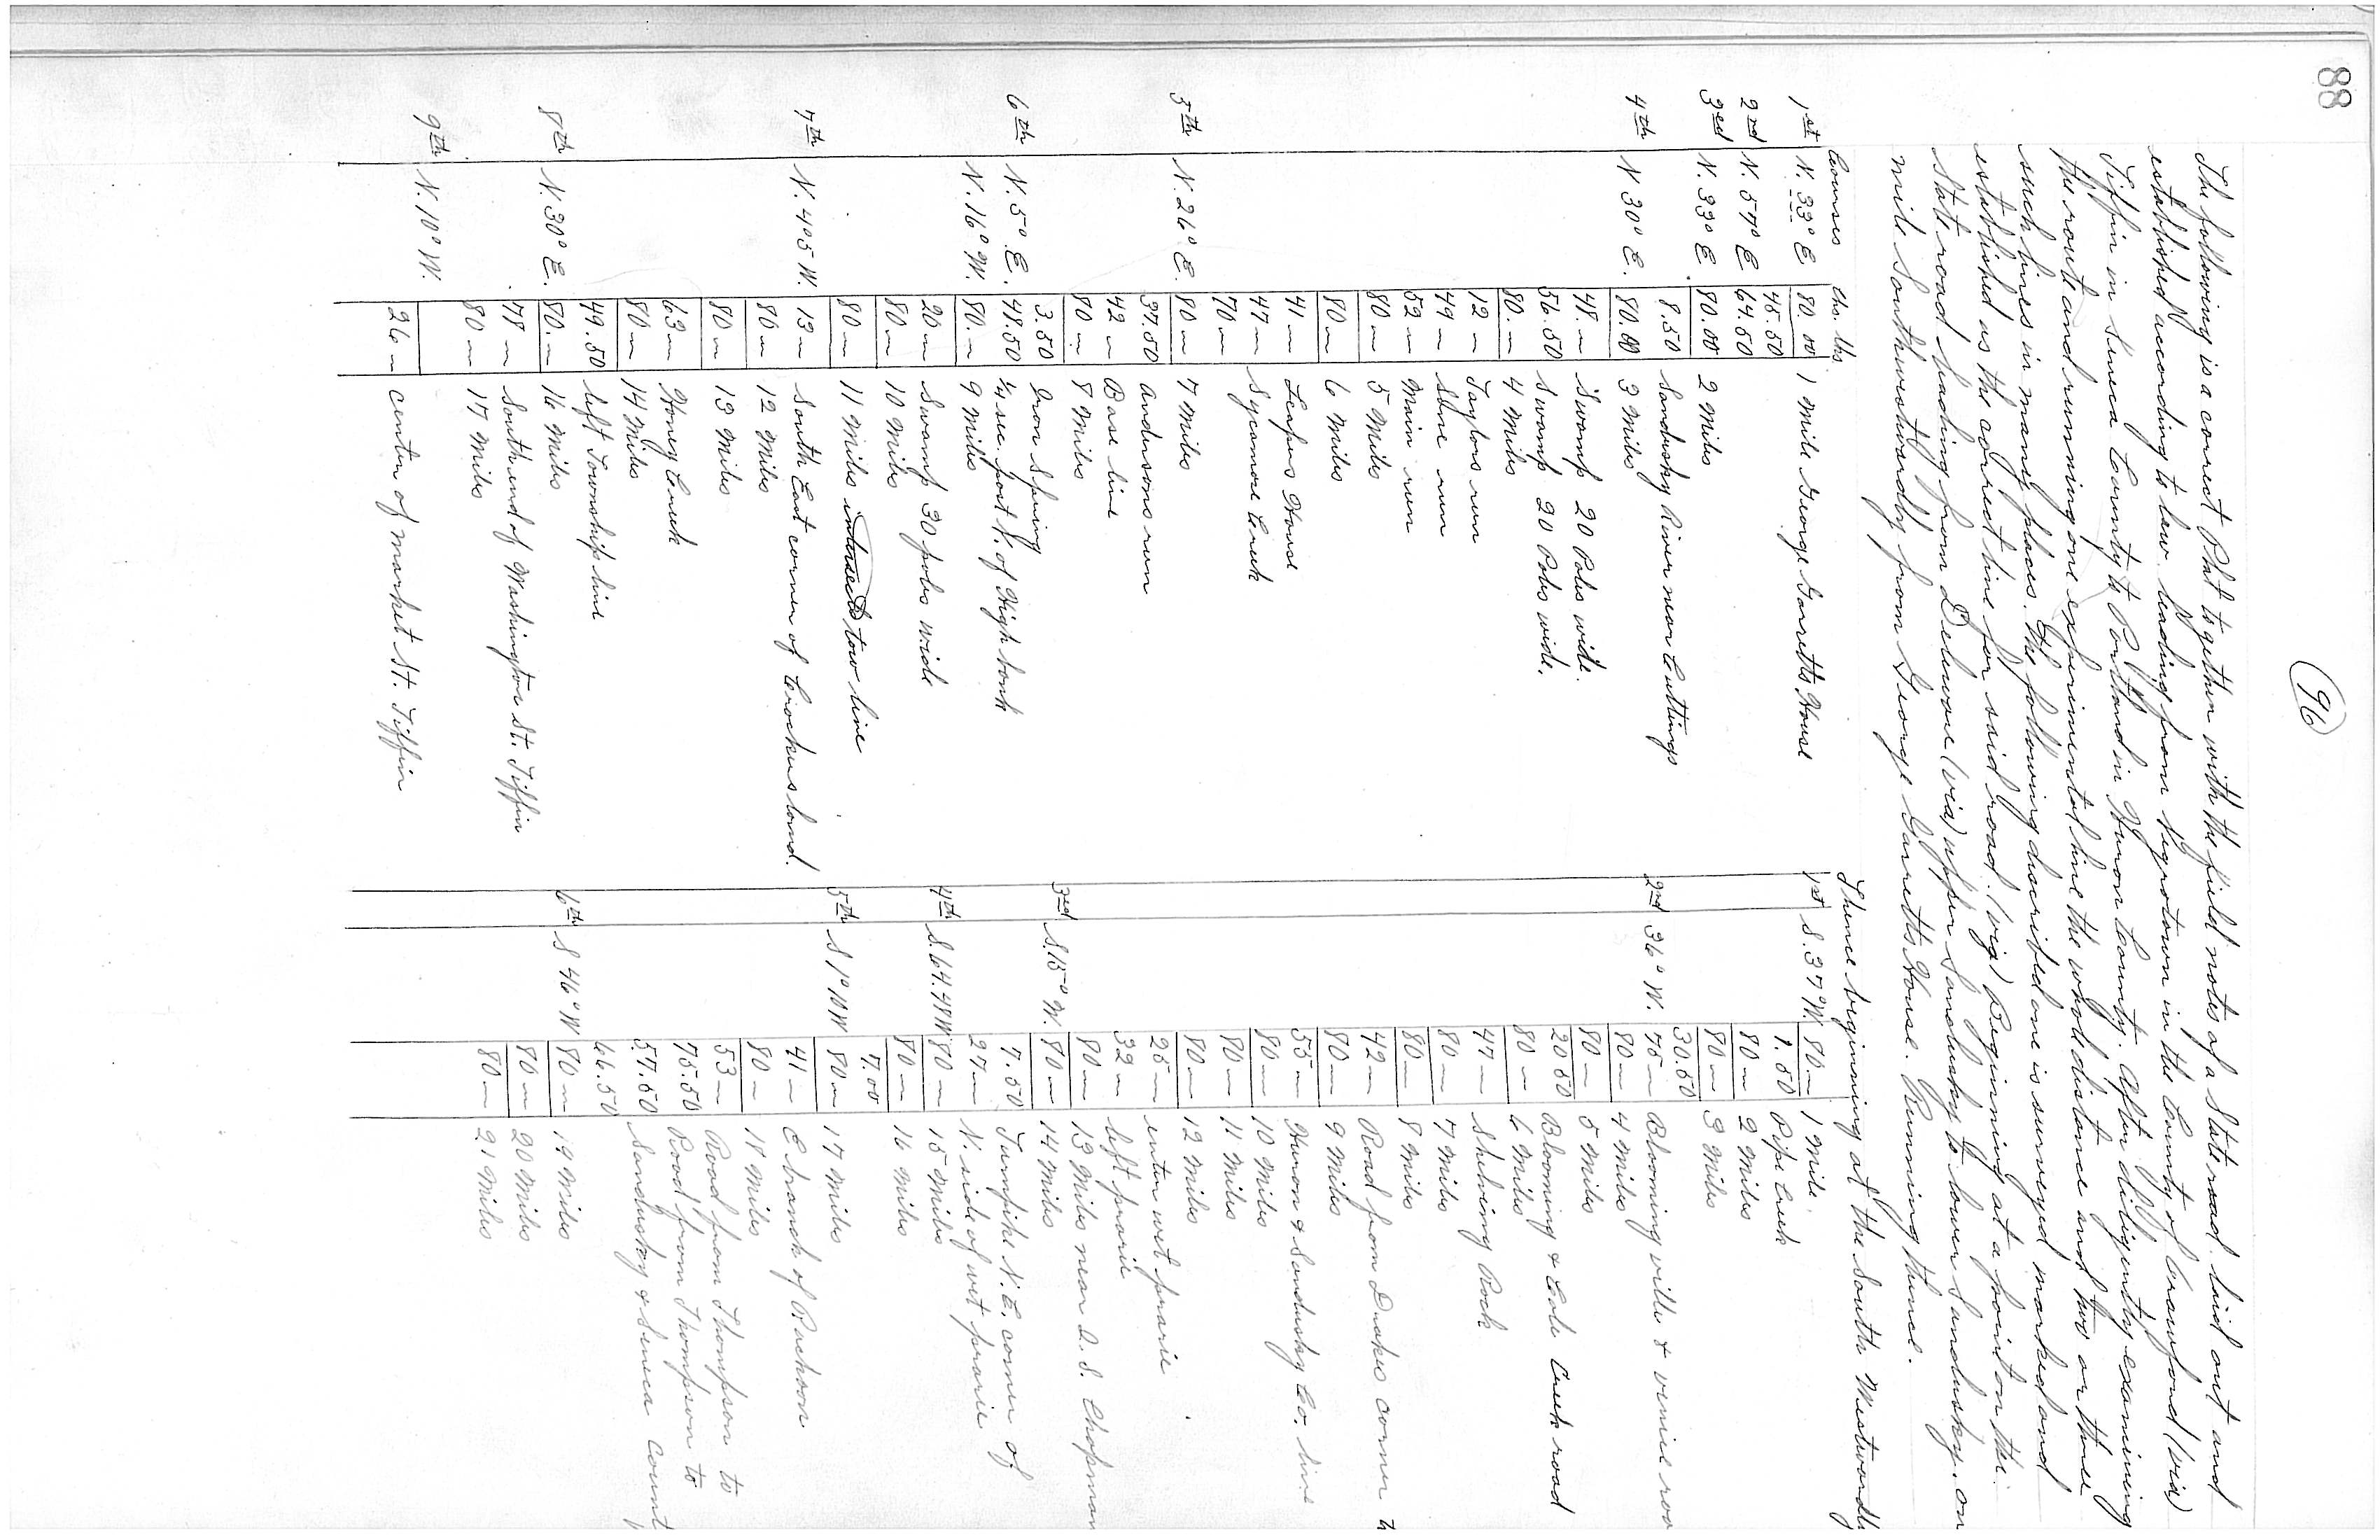 88
96
The following is a correct Plat together with the field notes of a State road laid out and
established according to law leading from Negrotown in the County of Crawford (via)
Tiffin in Seneca County to Portland in Huron County. After diligently examining
the route and running one experimental line the whole distance and two or three
such lines in many places. The following described one is surveyed marked and
established as the correct line for said road. (viz) Beginning at a point on the
State road leading from Delaware (via) upper Sandusky to lower Sandusky. on
mile Southwestwardly from George Garretts House. Running thence.
Courses Chs. lks
1st N. 33° E 80.00 1 Mile George Garretts House
45.50
2nd N. 57° E 64.50
3rd N. 33° E 80.00 2 Miles
8.50 Sandusky River near Cuttings
4th N 30° E. 80.00 3 Miles
48.— Swamp 20 Poles wide.
56.50 Swamp 20 Poles wide.
80.— 4 Miles
12 — Taylors run
49 — Stone run
52 — Main run
80 — 5 Miles
80 — 6 Miles
41 — Leaps House
47 — Sycamore Creek
70 —
5th N. 26° E. 80 — 7 Miles
37.50 Andersons run
42 — Base line
80 — 8 Miles
3.50 Iron Spring
6th N. 5° E. 48.50 1/4 sec. post N. of High bank
N. 16° W. 80 — 9 Miles
20 — Swamp 30 poles wide
80 — 10 Miles
80 — 11 Miles intersects tow line
7th N. 405 W. 13 — South East corner of Crockers land.
80 — 12 Miles
80 — 13 Miles
63 — Honey Creek
80 — 14 Miles
49.50 left Township line
8th N. 30° E. 80. — 16 Miles
78 — South end of Washington St. Tiffin
80 — 17 Miles
9th N. 10° W.
26 — center of market St. Tiffin
Thence beginning at the South Westwardly
1st S. 37° W. 80 — 1 Mile.
1.50 Pipe Creek
80 — 2 Miles
80 — 3 Miles
30.50
2nd 36° W. 75 — Blooming ville & venice roa
80 — 4 Miles
80 — 5 Miles
20 50 Blooming & Cole Creek road
80 — 6 Miles
47 — Shelving Rock
80 — 7 Miles
80 — 8 Miles
42 — Road from Drakes corner t
80 — 9 Miles
55 — Huron & Sandusky Co. line
80 — 10 Miles
80 — 11 Miles
80 — 12 Miles
25 — enter wet prarie
32 — left prarie
80 — 13 Miles near I. S. Chapman
3rd S. 15° W. 80 — 14 Miles
7.50 Turnpike N. E. corner of
27 — N. side of wet prarie
4th S. 64.49W 80 — 15 Miles
80 — 16 Miles
7.00
5th S 1° 10 W 80 — 17 Miles
41 — E branch of Rackoon
80 — 18 Miles
53 — Road from Thompson to
75.50 Road from Thompson to
57.50 Sandusky & Seneca Count
66.50
6th S 46° W 80 — 19 Miles
80 — 20 Miles
80 — 21 Miles